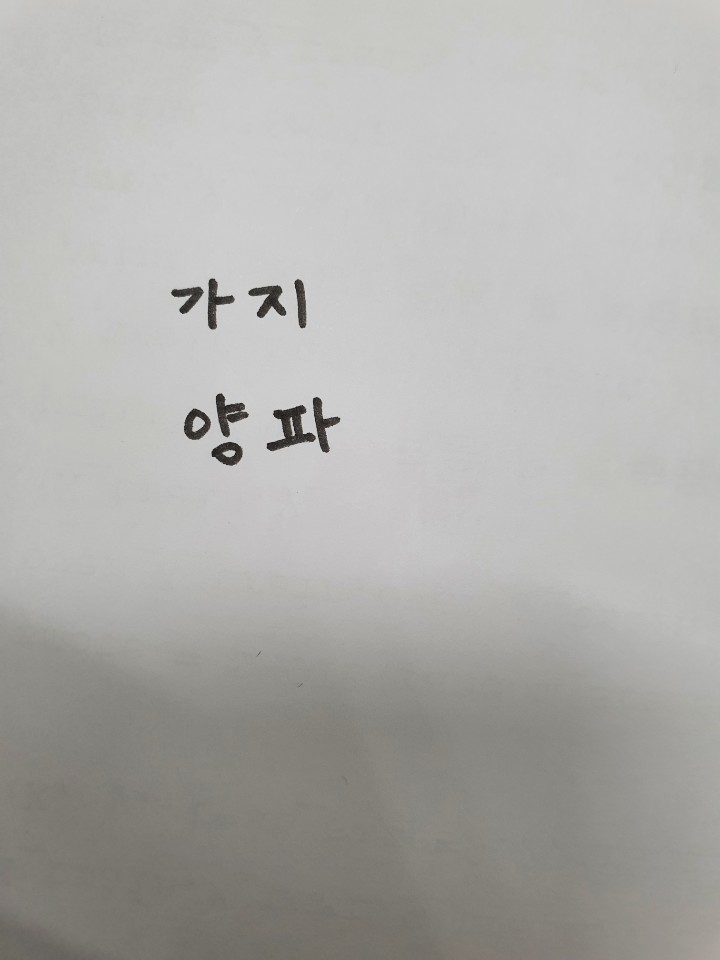 가지
양파